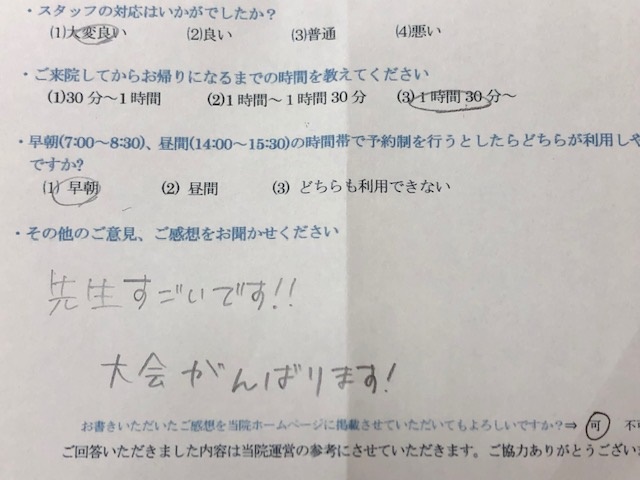 ・スタッフの対応はいかがでしたか？
(1)大変良い (2)良い (3)普通 (4)悪い
・ご来院してからお帰りになるまでの時間を教えてください
(1)30分～1時間 (2)1時間～1時間30分 (3)1時間30分～
・早朝(7:00～8:30)、昼間(14:00～15:30)の時間帯で予約制を行うとしたらどちらが利用しや
ですか?
(1) 早朝 (2) 昼間 (3) どちらも利用できない
・その他のご意見、ご感想をお聞かせください
先生すごいです!!
大会がんばります!
お書きいただいたご感想を当院ホームページに掲載させていただいてもよろしいですか？⇒ 可 不
ご回答いただきました内容は当院運営の参考にさせていただきます。ご協力ありがとうござい